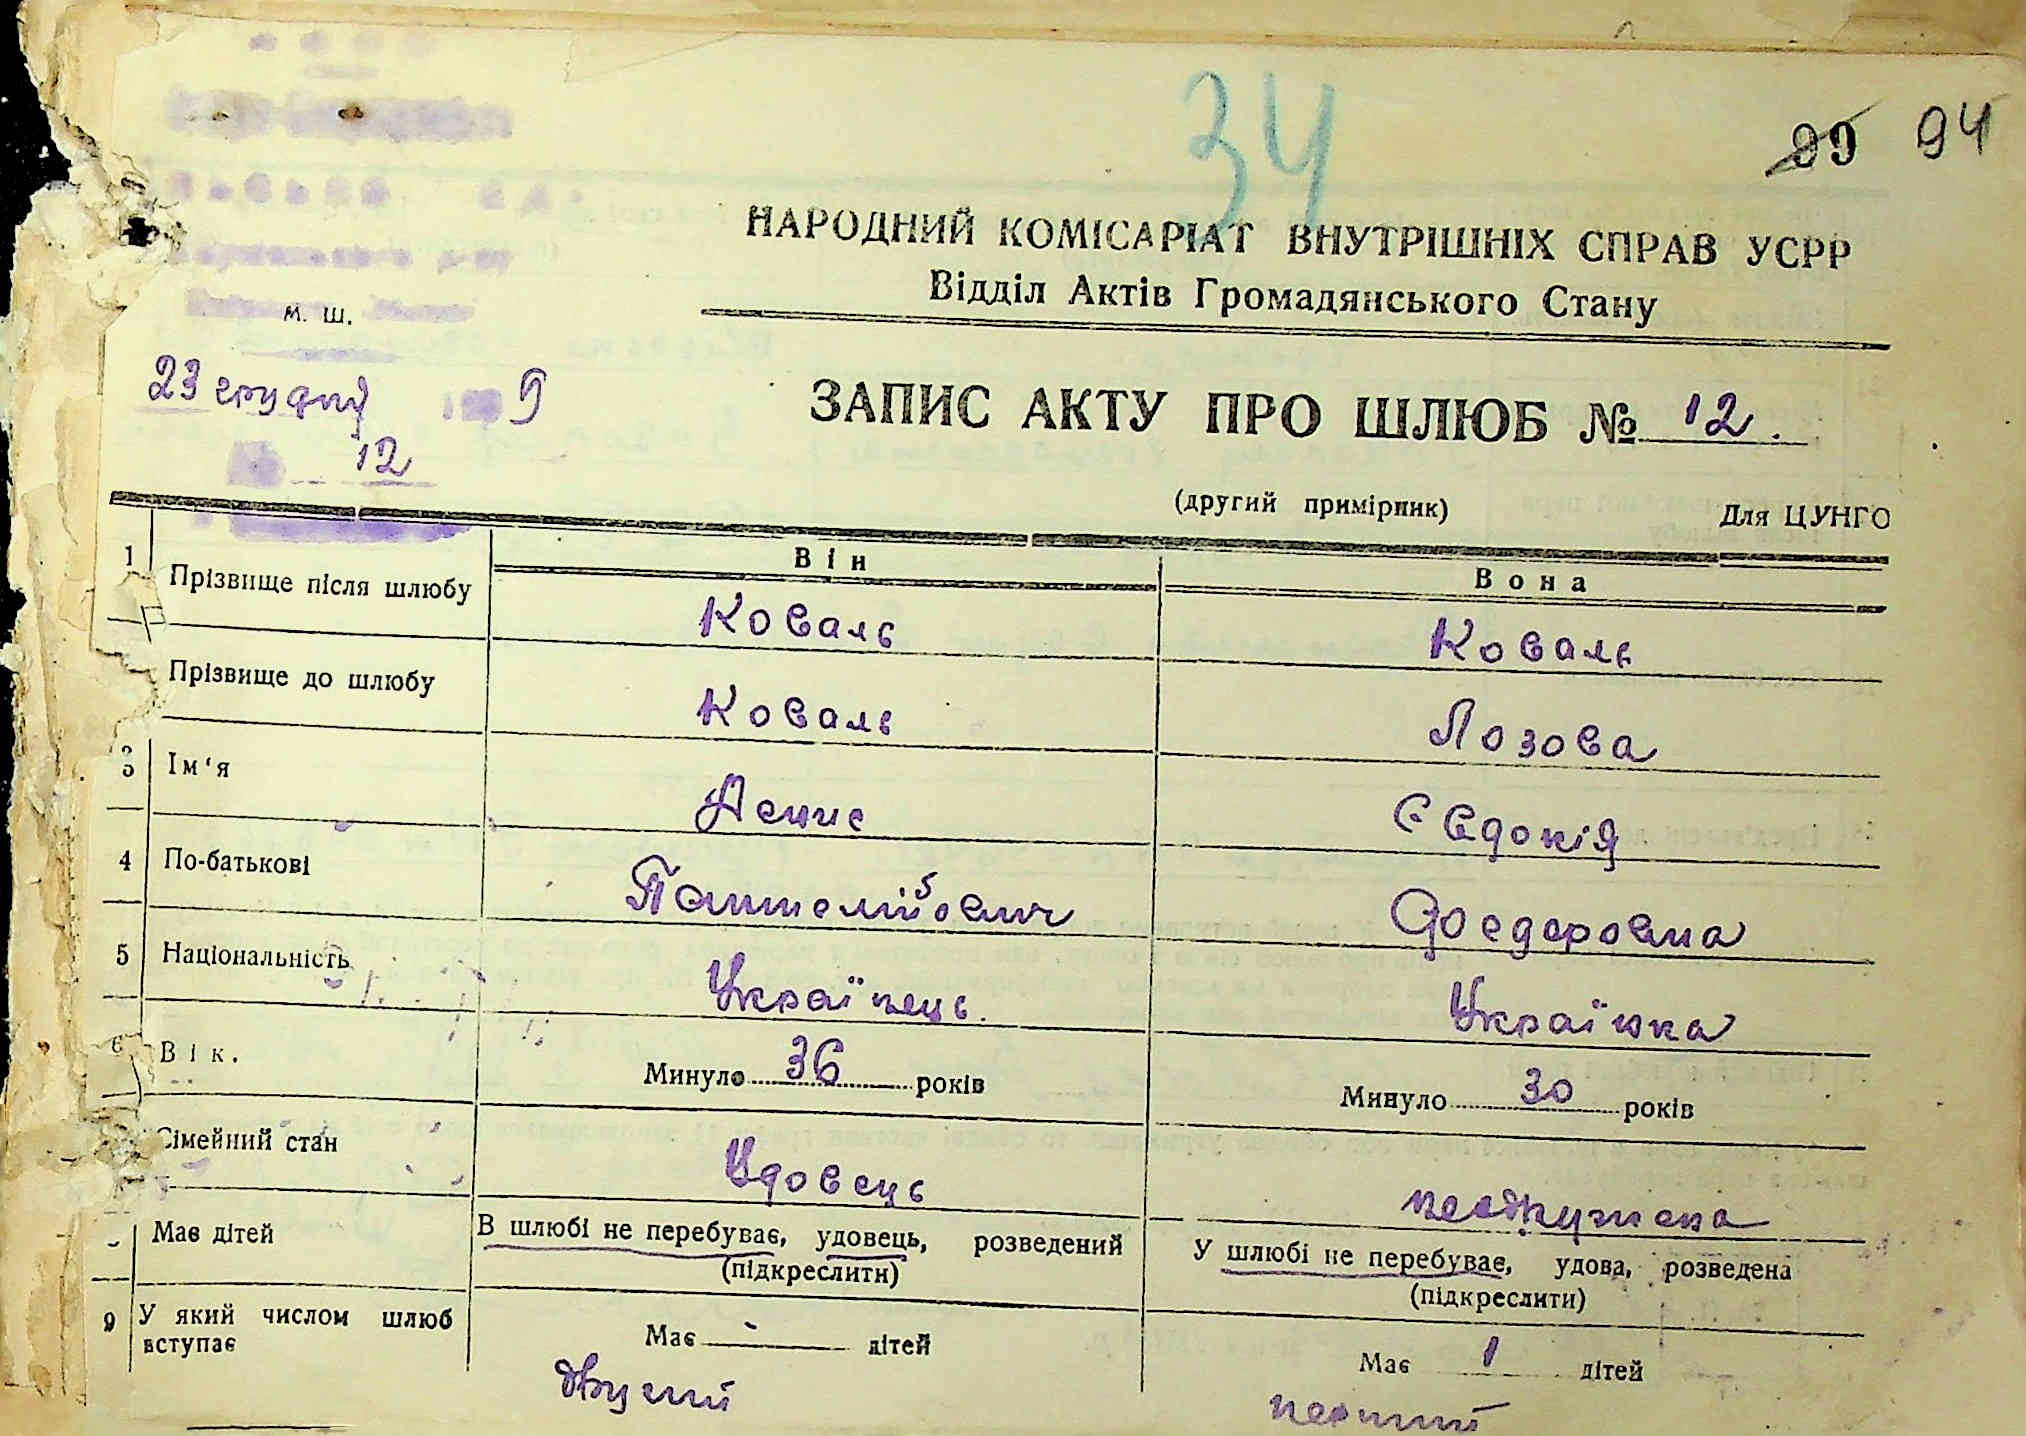 34
99 94
НАРОДНИЙ КОМІСАРІАТ ВНУТРІШНІХ СПРАВ УСРР
Відділ Актів Громадянського Стану
м. ш.
23 грудня 9
12
ЗАПИС АКТУ ПРО ШЛЮБ № 12.
(другий примірник) Для ЦУНГО
Він Вона
1 Прізвище після шлюбу Коваль Коваль
Прізвище до шлюбу Коваль Лозова
3 Ім'я Денис Євдокія
4 По-батькові Пантелійович Фоедеровна
5 Національність Українець. Українка
6 Вік. Минуло 36 років Минуло 30 років
Сімейний стан Удовець незамужена
В шлюбі не перебуває, удовець, розведений У шлюбі не перебуває, удова, розведена
(підкреслити) (підкреслити)
Має дітей Має - дітей Має 1 дітей
9 У який числом шлюб вступає другий перший